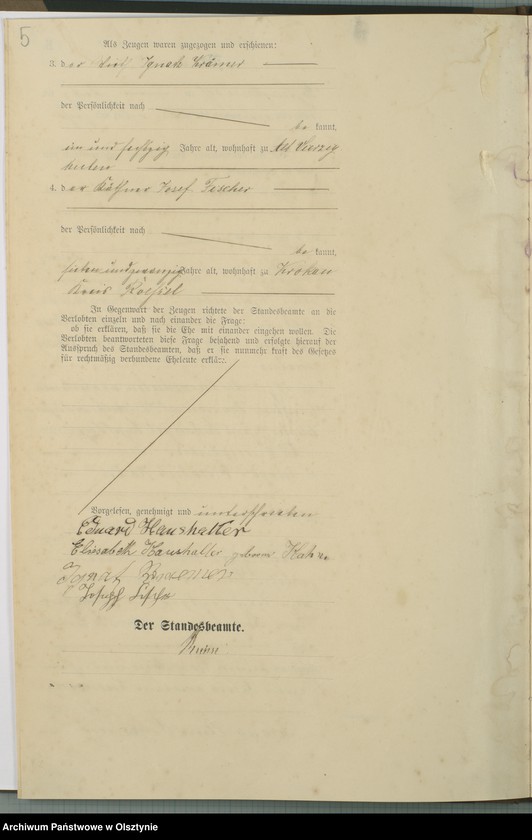 5
Als Zeugen waren zugezogen und erschienen:
3. der Wirt Ignatz Krämer
der Persönlichkeit nach
be kannt,
ein und sechzig Jahre alt, wohnhaft zu Alt
4. der Käthner Josef Fischer
der Persönlichkeit nach
be kannt,
sieben und zwanzig Jahre alt, wohnhaft zu Krokau
Kreis Rössel
In Gegenwart der Zeugen richtete der Standesbeamte an die
Verlobten einzeln und nach einander die Frage:
ob sie erklären, daß sie die Ehe mit einander eingehen wollen. Die
Verlobten beantworteten diese Frage bejahend und erfolgte hierauf der
Ausspruch des Standesbeamten, daß er sie nunmehr kraft des Gesetzes
für rechtmäßig verbundene Eheleute erkläre.
Vorgelesen, genehmigt und unterschrieben
Eduard Haushalter
Elisabeth Haushalter geborne
Ignatz Kraemer
Joseph
Der Standesbeamte.
Archiwum Państwowe w Olsztynie